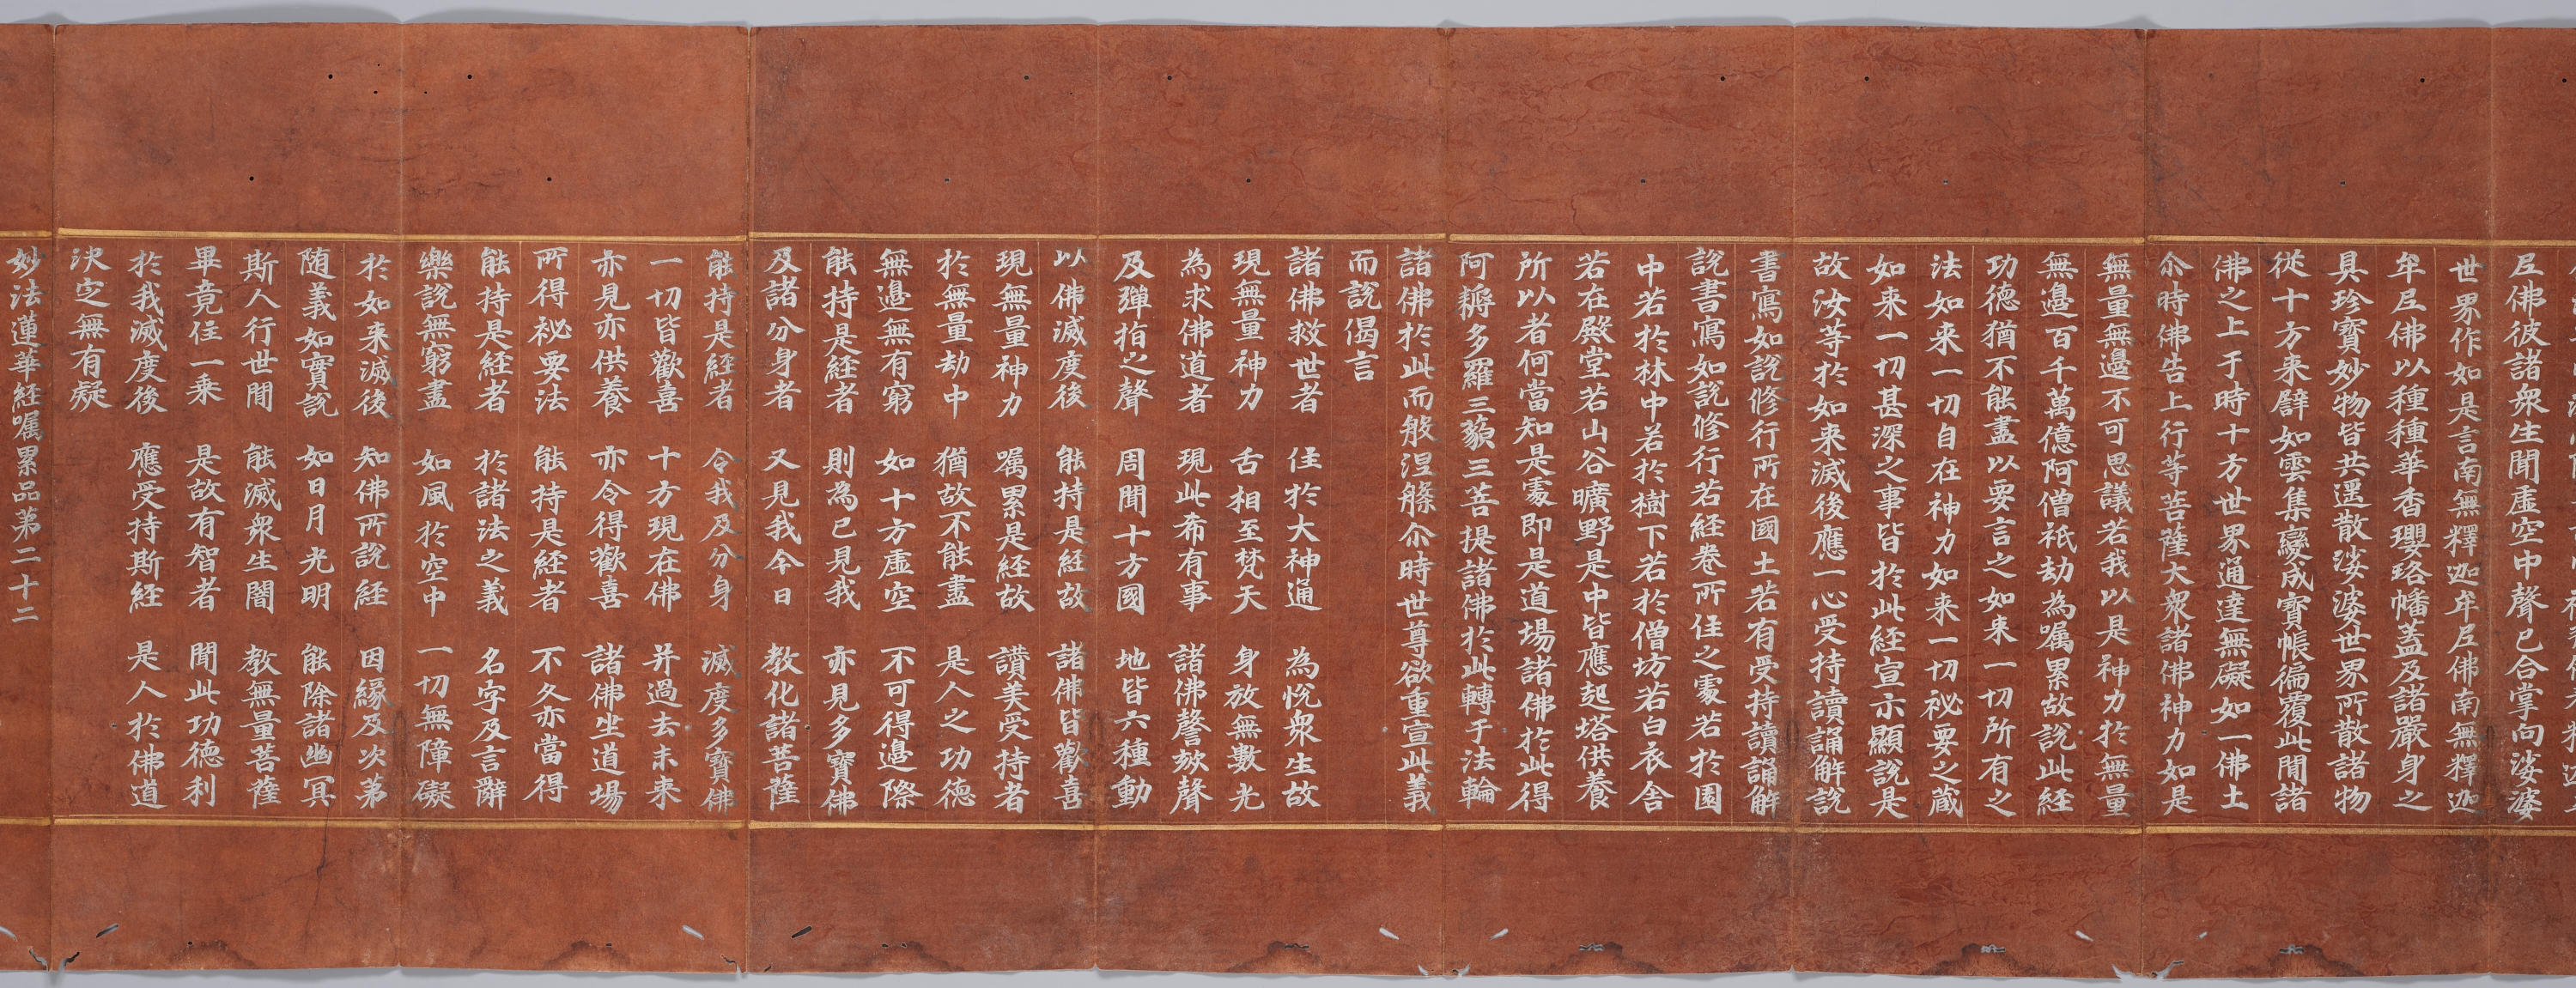 尼佛彼諸衆生聞虛空中聲已合掌向娑婆
世界作如是言南無釋迦牟尼佛南無釋迦
牟尼佛以種種華香瓔珞幡盖及諸嚴身之
具珍寶妙物皆共遥散娑婆世界所散諸物
從十方来譬如雲集變成寶帳徧覆此閒諸
佛之上于時十方世界通達無礙如一佛土
尒時佛告上行等菩薩大衆諸佛神力如是
無量無邊不可思議若我以是神力於無量
無邊百千萬億阿僧祇劫為嘱累故說此経
功德猶不能盡以要言之如来一切所有之
法如来一切自在神力如来一切祕要之蔵
如来一切甚深之事皆於此経宣示顯說是
故汝等於如来滅後應一心受持讀誦解說
書寫如說修行所在國土若有受持讀誦解
說書寫如說修行若経卷所住之處若於園
中若於林中若於樹下若於僧坊若白衣舍
若在殿堂若山谷曠野是中皆應起塔供養
所以者何當知是處即是道場諸佛於此得
阿耨多羅三藐三菩提諸佛於此轉于法輪
諸佛於此而般涅槃尒時世尊欲重宣此義
而說偈言
諸佛救世者 住於大神通 為悅衆生故
現無量神力 舌相至梵天 身放無數光
為求佛道者 現此希有事 諸佛謦欬聲
及彈指之聲 周聞十方國 地皆六種動
以佛滅度後 能持是経故 諸佛皆歡喜
現無量神力 嘱累是経故 讃美受持者
於無量劫中 猶故不能盡 是人之功德
無邊無有窮 如十方虛空 不可得邊際
能持是経者 則為已見我 亦見多寶佛
及諸分身者 又見我今日 教化諸菩薩
能持是経者 令我及分身 滅度多寶佛
一切皆歡喜 十方現在佛 并過去未来
亦見亦供養 亦令得歡喜 諸佛坐道場
所得祕要法 能持是経者 不久亦當得
能持是経者 於諸法之義 名字及言辭
樂說無窮盡 如風於空中 一切無障礙
於如来滅後 知佛所說経 因緣及次第
随義如實說 如日月光明 能除諸幽冥
斯人行世閒 能滅衆生闇 教無量菩薩
畢竟住一乗 是故有智者 聞此功德利
於我滅度後 應受持斯経 是人於佛道
决定無有疑
妙法蓮華経嘱累品第二十二